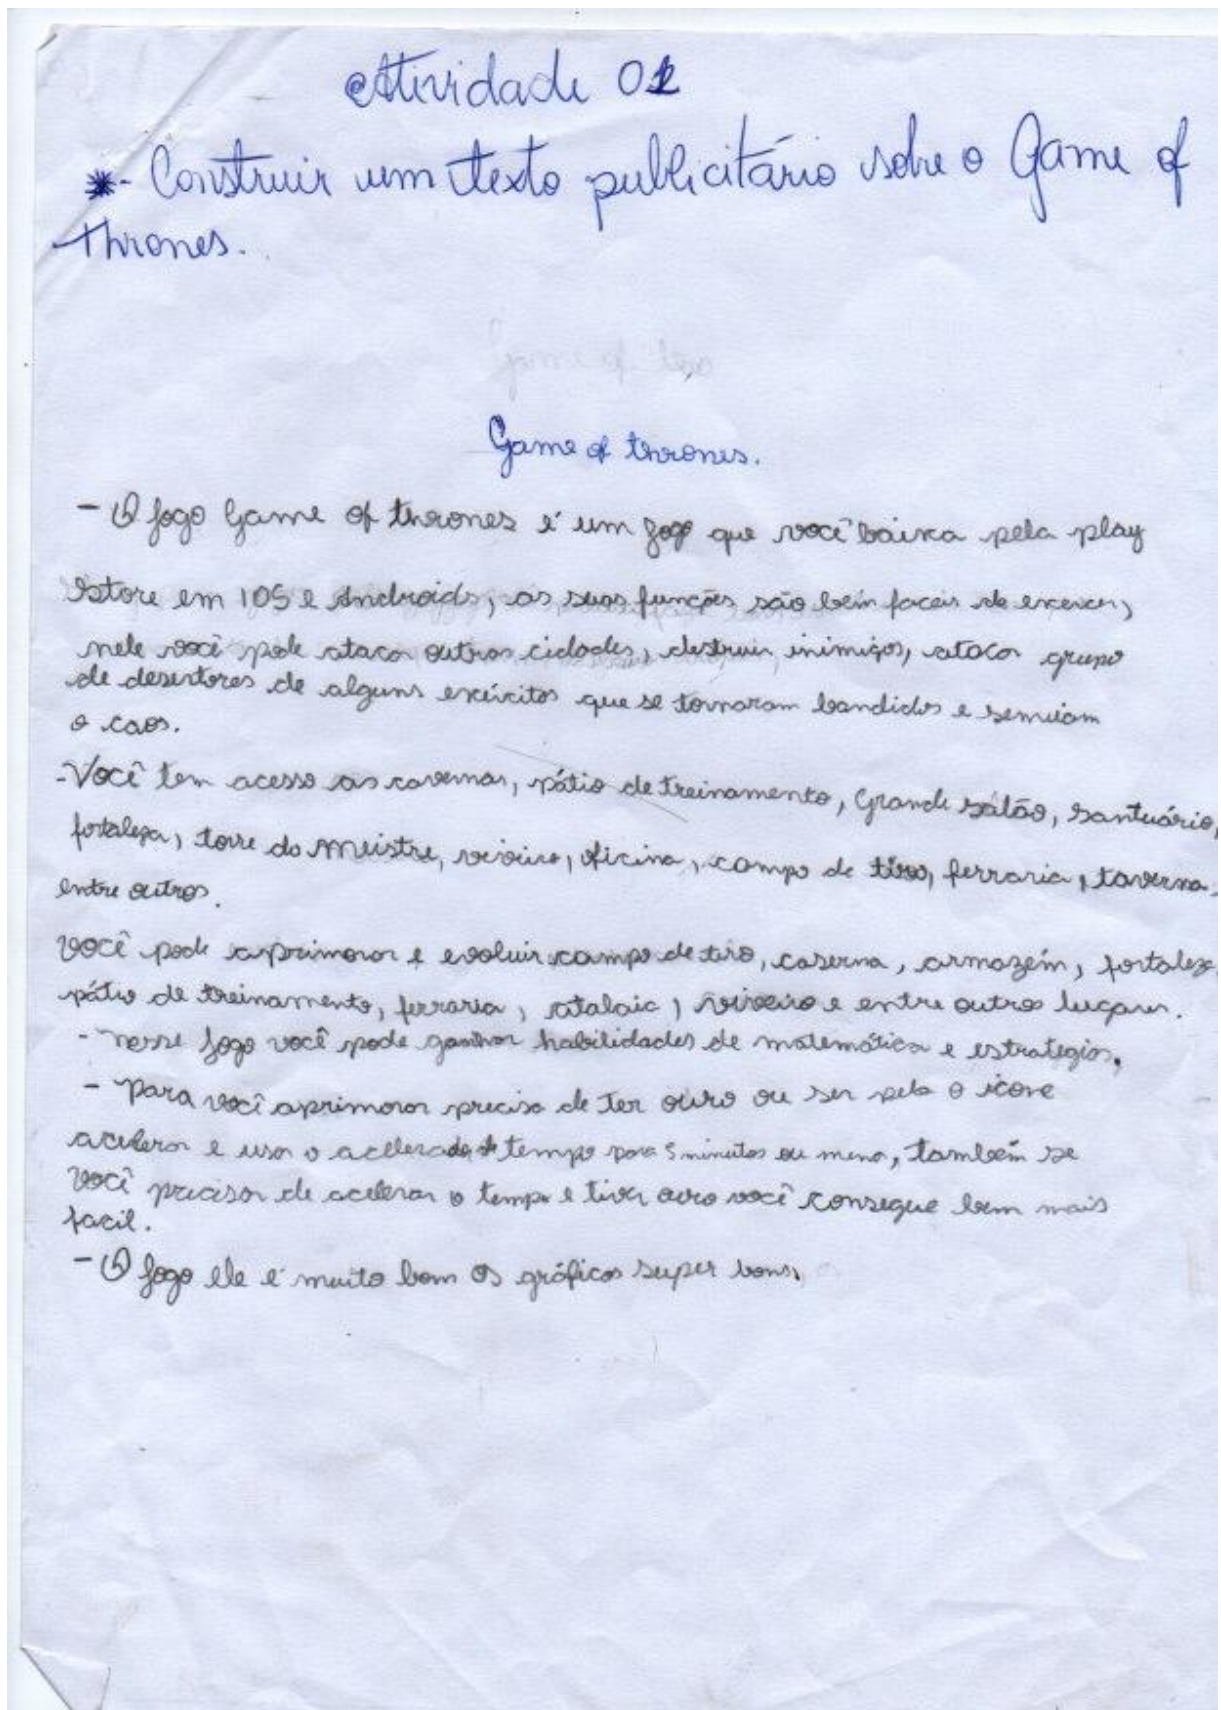 Atividade 01
*- Construir um texto publicitário sobre o Game of
Thrones.
Game of thrones.
- O jogo Game of thrones é um jogo que você baixa pela play
Store em IOS e Androids, as suas funções são bem faceis de exercer,
nele você pode ataca outras cidades, destruir inimigos, ataca grupo
de desertores de alguns exércitos que se tornaram bandidos e semeiam
o caos.
- Você tem acesso as cavernas, pátio de treinamento, Grande salão, Santuário,
fortaleza, torre do meistre, viveiro, oficina, campo de tiro, ferraria, taverna,
entre outros.
Você pode aprimorar e evoluir campo de tiro, caserna, armazém, fortaleza
pátio de treinamento, ferraria, atalaia, viveiro e entre outros lugares.
- nesse jogo você pode ganhar habilidades de matemática e estrategias.
- Para você aprimorar precisa de ter ouro ou ser pelo o icone
acelerar e usar o acelerador de tempo para 5 minutos ou meno, também se
você precisar de acelerar o tempo e tiver ouro você consegue bem mais
facil.
- O jogo ele é muito bom os gráficos super bons.